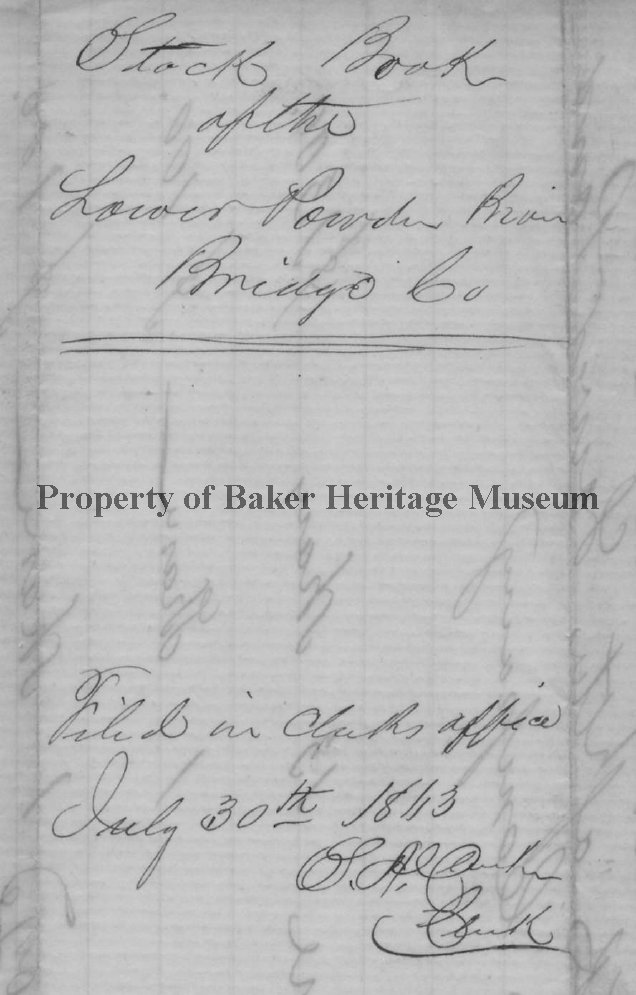 Stock Book
of the
Lower Powder River
Bridge Co
Property of Baker Heritage Museum
Filed in clerks office
July 30th 1863
S. H.
Clerk